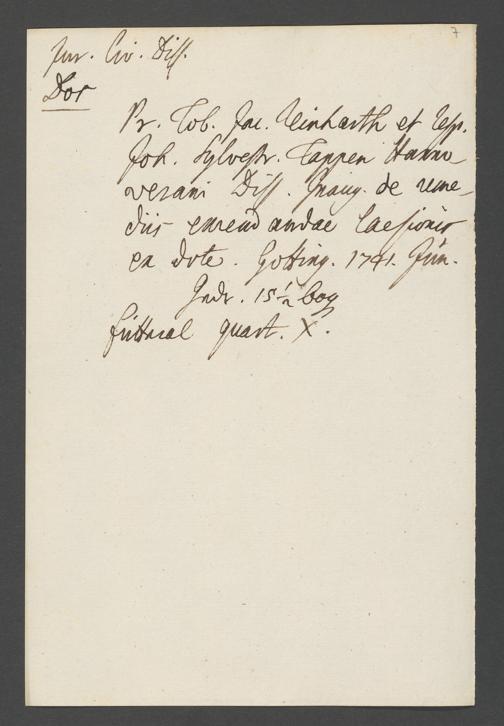 7
Jur. Civ. Diss.
Dos
Pr. Tob. Jac. Reinharth et Resp.
Joh. Sylvestr. Tappen Hanno
verani Diss. Inaug. de reme-
diis emendandae laesionis
ex dote. Gotting. 1741. Jun.
15 1/2 bog
futteral quart. X.